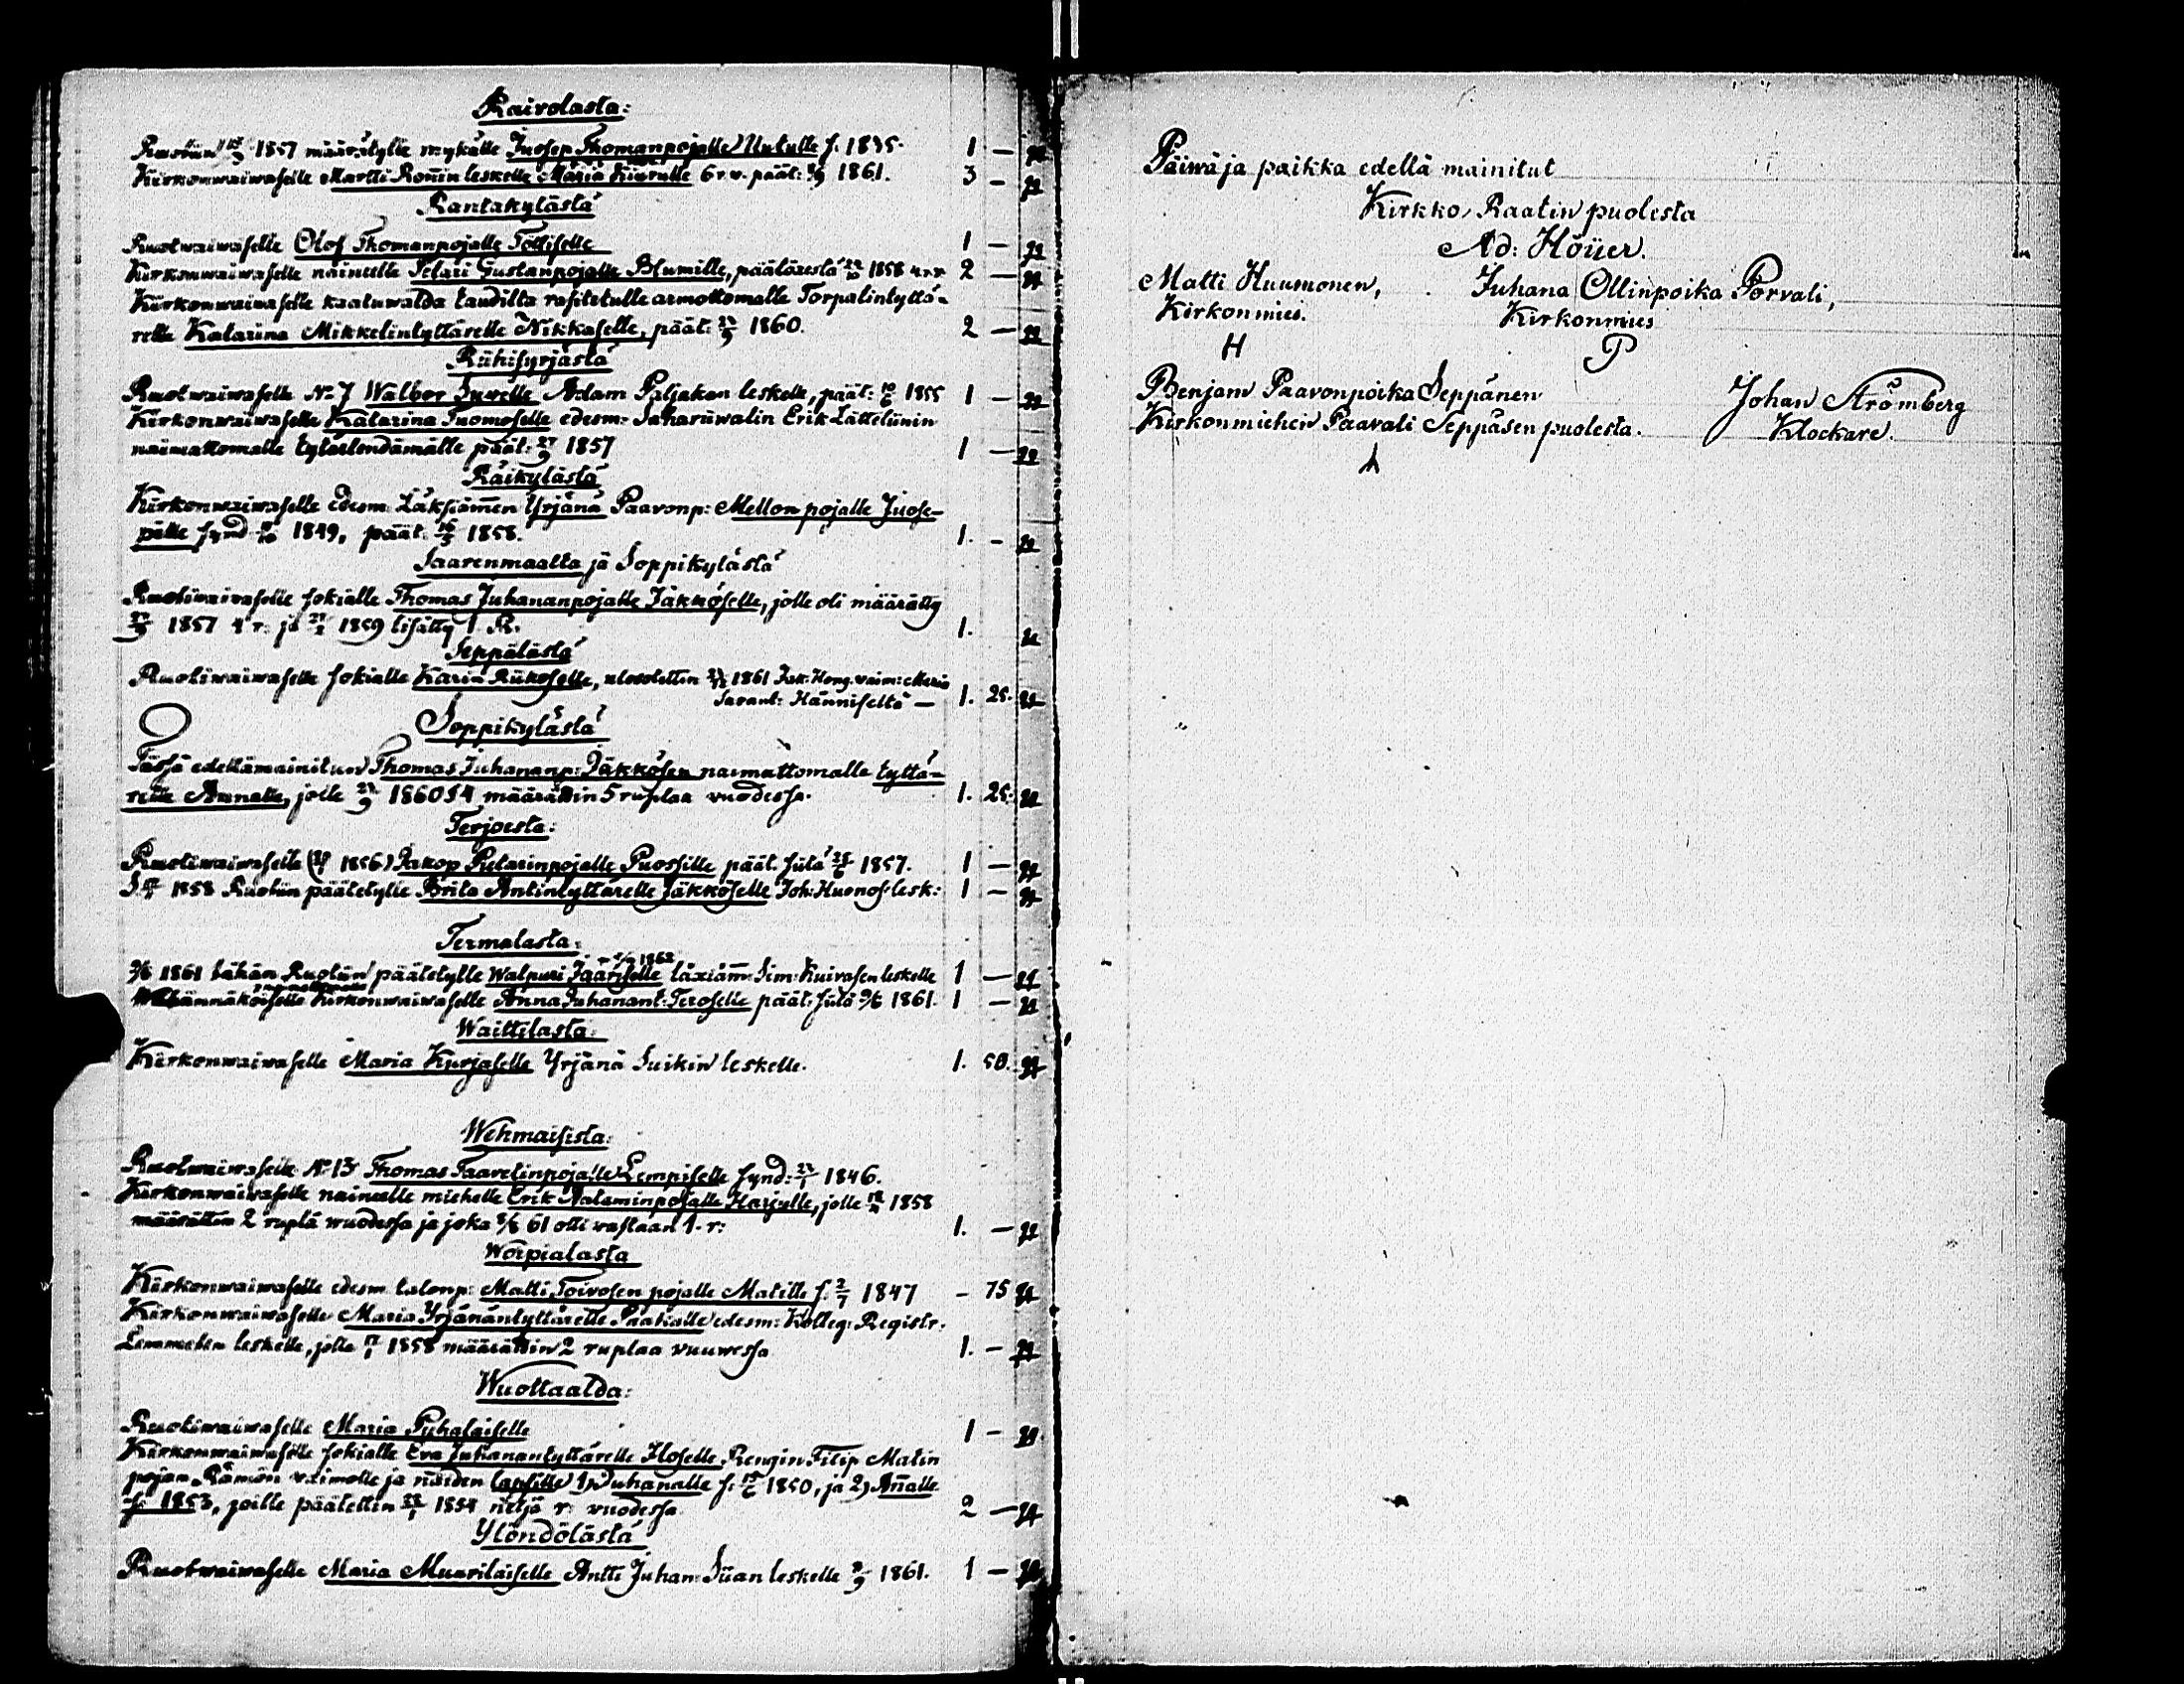 Raivolasta:
Ruotiin 1857 määrätylle Juosep Thomanpojalle Nutulle f. 1835. 1 —
Kirkonwaiwaselle Martti Romin leskelle Maria Kiurulle 6 r. v. päät: 1861. 3 —
Rantakylästä
Ruotwaiwaselle Olof Thomanpojalle 1 —
Kirkonwaiwaselle naineelle Petari Gustanpojalle Blumille, päätöxestä 1858 4 r. 2 —
Kirkonwaiwaselle kaatuwalda taudilta rasitetulle armottomalle Torpalintyttä-
relle Katarina Mikkelintyttärelle Nikkaselle, päät: 27/9 1860. 2 —
Riihisyrjästä
Ruotwaiwaselle No 7 Walbor Adam Paljakan leskelle, päät: 1855 1 —
Kirkonwaiwaselle Katarina Tuomoselle edesm: Erik Lättelünin
naimattomalle päät: 27/9 1857 1 —
Räikylästä
Kirkonwaiwaselle edesm: Läksiämen Yrjänä Paavonp: Mellon pojalle Juose-
pille fynd 1849, päät: 1858. 1. —
Saarenmaalta ja Soppikylästä
Ruotiwaiwaselle sokialle Thomas Juhananpojalle Jäkköselle, jolle oli määrätty
1857 4 r: ja 1859 lisätty 1 R. 1.
Seppälästä
Ruotiwaiwaselle sokialle Karin Riikoselle, 1861 vaim: Maria
Hänniseltä — 1. 25.
Soppikylästä
Tässä edellämainitun Thomas Juhananp: Jäkkösen naimattomalle tyttä-
relle Annalle, jolle 1860 § 4 määrättiin 5 ruplaa vuodessa. 1. 25.
Terjoesta:
Ruotiwaiwaselle 1856) Jakop Pietarinpojalle Puossille päät. siitä 1857. 1 —
1858 Ruotiin päätetylle Brita Antintyttärelle Jäkköselle Joh: Huonos: lesk: 1 —
Termolasta:
1862
9/6 1861 tähän Ruotiin päätetylle Walpuri Jääriselle läxiäm: Sim: Kuivasen leskelle 1 —
Kirkonwaiwaselle Anna Juhanant: Teroselle päät: siitä 9/6 1861. 1 —
Waittilasta:
Kirkonwaiwaselle Maria Kurjaselle Yrjänä Suikin leskelle. 1. 50.
Wehmaisista:
Ruotwaiwaselle No 13 Thomas Taavetinpojalle Lempiselle fynd: 1846.
Kirkonwaiwaselle naineelle miehelle Erik Harjulle, jolle 1858
määrättiin 2 ruplä wuodessa ja joka 61 otti vastaan 1. r: 1. —
Worpialasta
Kirkonwaiwaselle edesm: talonp: Matti Toivosen pojalle Matille f. 2/7 1847 — 75
Kirkonwaiwaselle Maria Yrjänäntyttärelle edesm: Kolleg: Registr:
leskelle, jolle 1858 määrättiin 2 ruplaa vuuwessa 1. —
Wuottaalda:
Ruotiwaiwaselle Maria Puhalaiselle 1 —
Kirkonwaiwaselle sokialle Eva Juhanantyttärelle Iloselle Rengin Filip Matin
pojan Rämön vaimolle ja näiden lapsille 1) Juhanalle f. 1850, ja 2) Analle
f. 1853, joille päätettiin 1854 neljä r: vuodessa 2 —
Ylöndölästä
Ruotwaiwaselle Maria Muurilaiselle Antti Juhan: Siian leskelle 1861. 1 —
Päiwä ja paikka edellä mainitut
Kirkko, Raatin puolesta
Ad: Höijer.
Matti Huumonen, Juhana Ollinpoika Porvali,
Kirkonmies. Kirkonmies
H P
Benjam Paavonpoika Seppänen Johan Strömberg
Kirkonmiehen Paavali Seppäsen puolesta. Klockare.